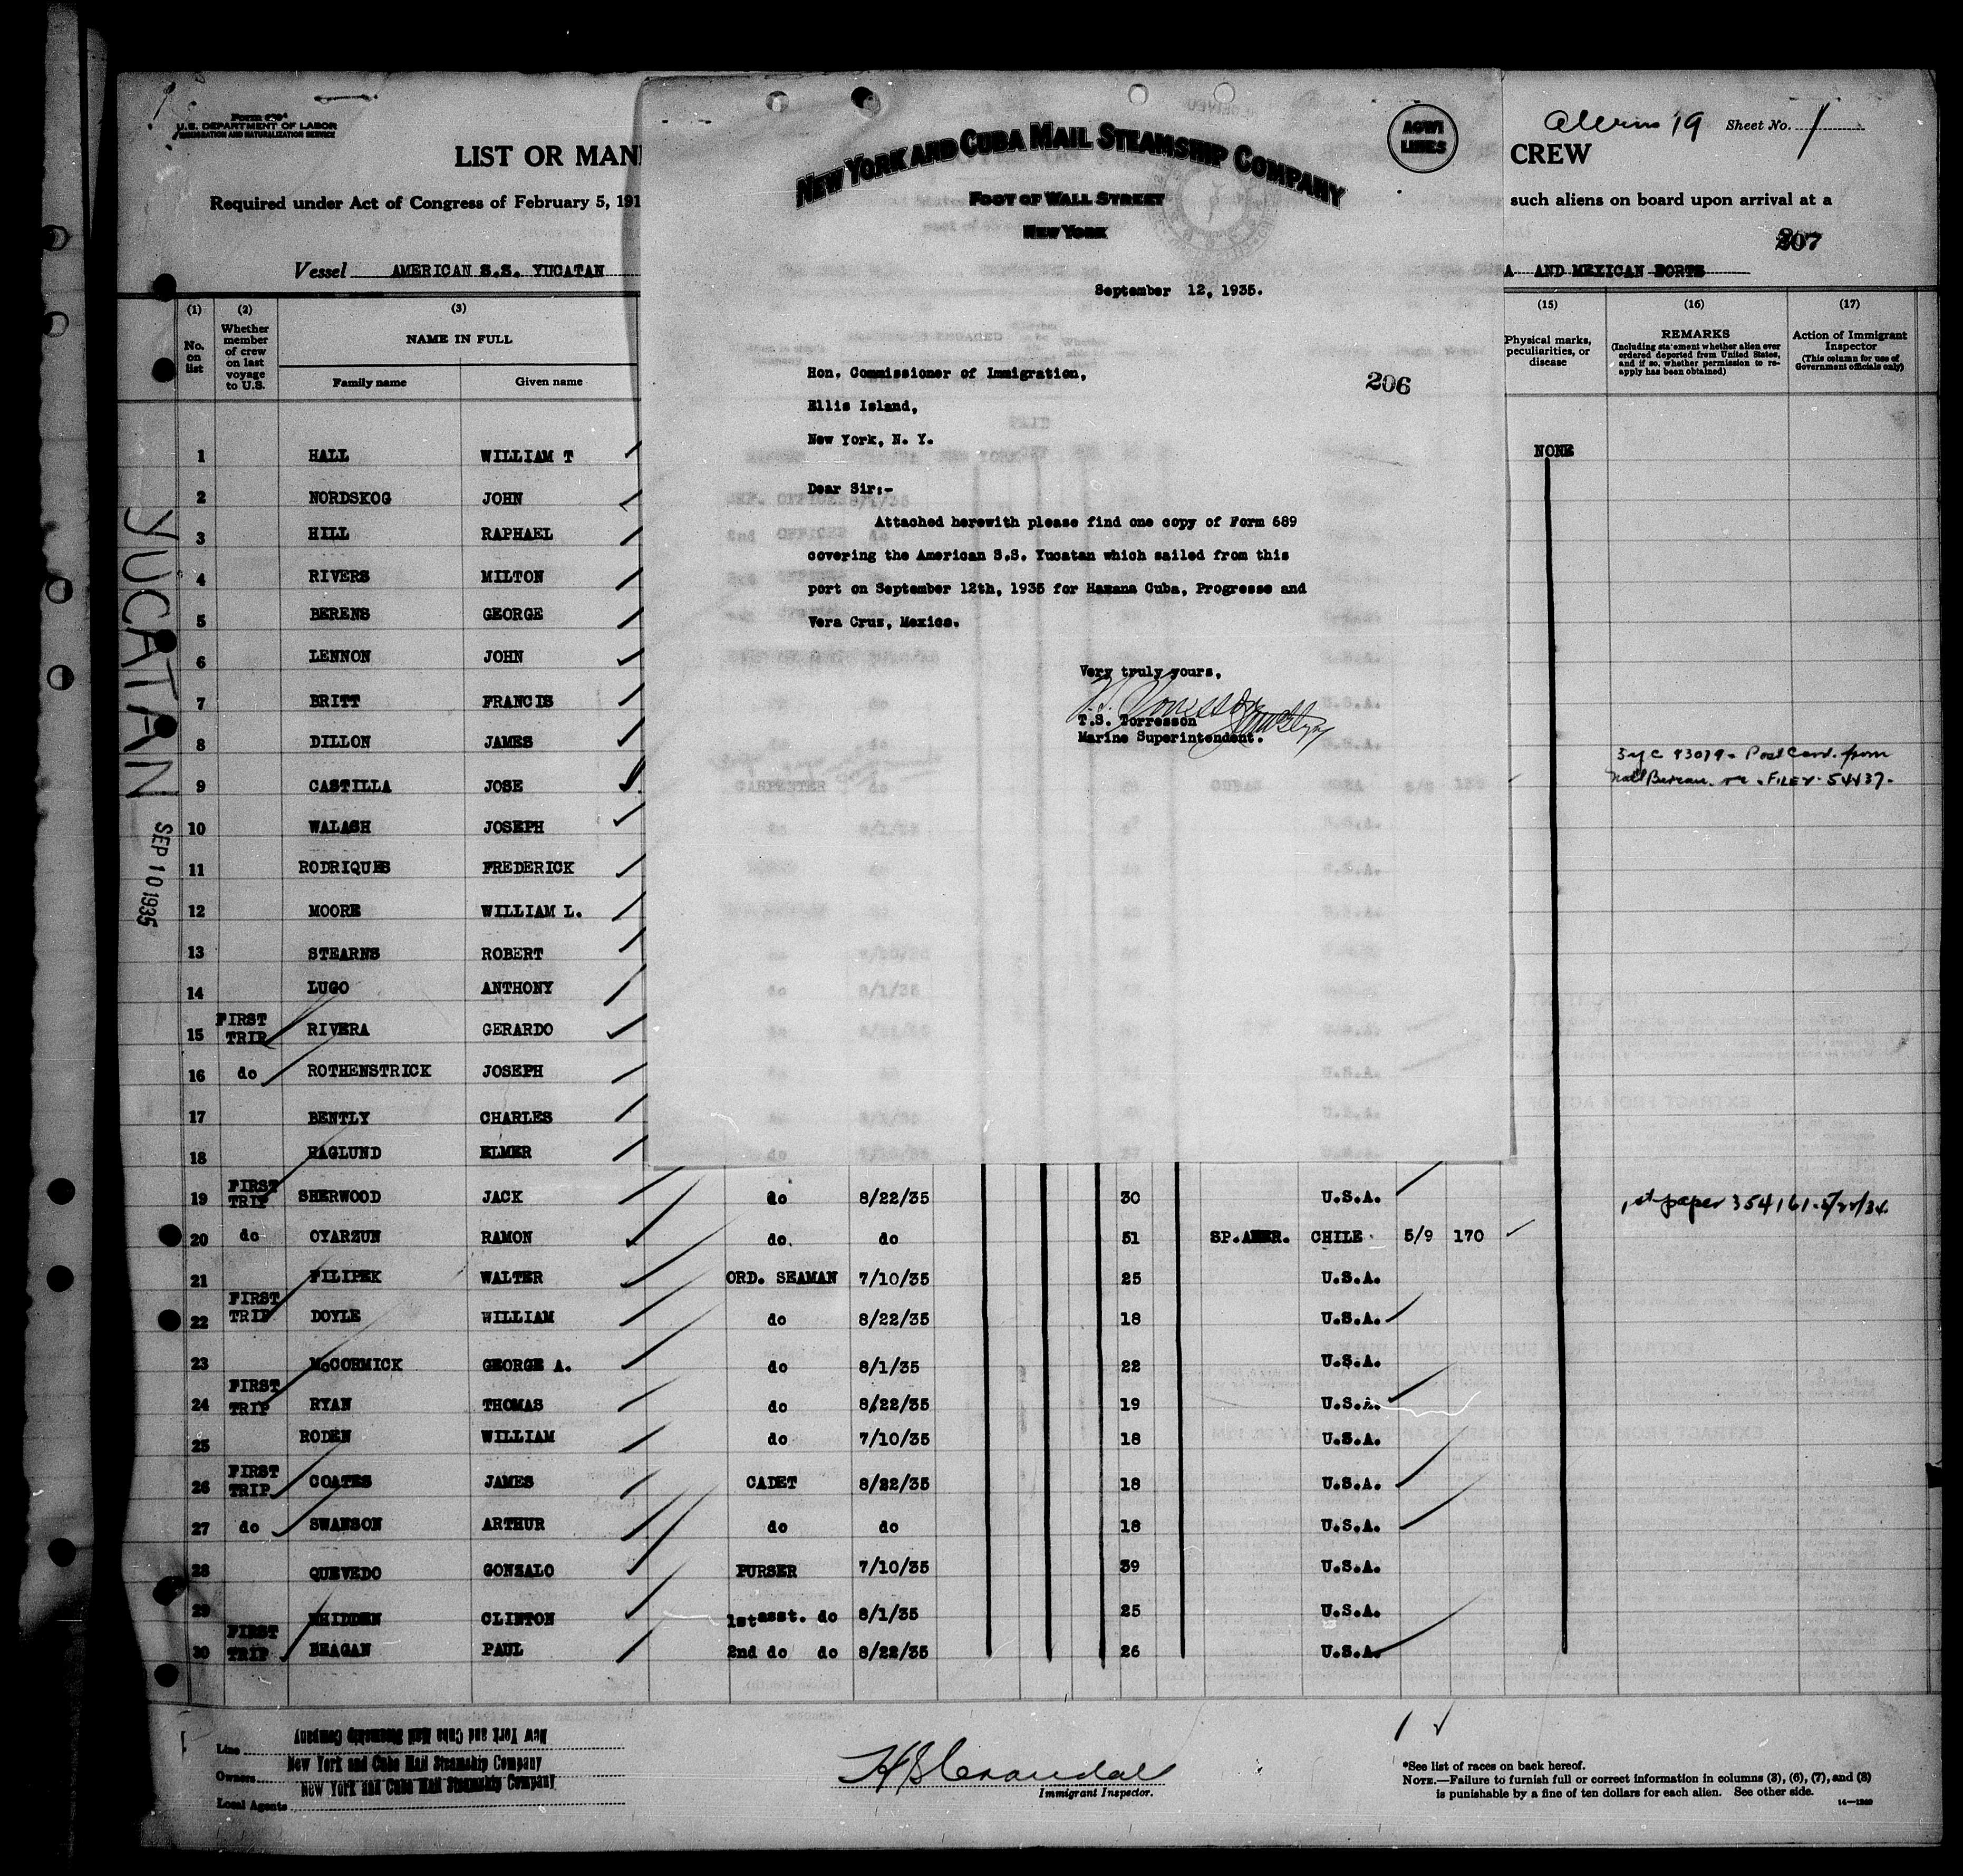 Form 689
U.S. DEPARTMENT OF LABOR
IMMIGRATION AND NATURALIZATION SERVICE
LIST OR MAN
CREW
19 Sheet No. 1
Required under Act of Congress of February 5, 191
such aliens on board upon arrival at a
207
Vessel AMERICAN S.S. YUCATAN
A AND MEXICAN PORTS
NEW YORK AND CUBA MAIL STEAMSHIP COMPANY
FOOT OF WALL STREET
NEW YORK
AGWI
LINES
September 12, 1935.
206
Hon. Commissioner of Immigration,
Ellis Island,
New York, N. Y.
Dear Sir:-
Attached herewith please find one copy of Form 689
covering the American S.S. Yucatan which sailed from this
port on September 12th, 1935 for Hamana Cuba, Progresse and
Vera Cruz, Mexico.
Very truly yours,
T.S. Torresson
Marine Superintendent.
(1) No. on list
(2) Whether member of crew on last voyage to U.S.
(3) NAME IN FULL
Family name Given name
(15) Physical marks, peculiarities, or disease
(16) REMARKS
(Including statement whether alien ever ordered deported from United States, and if so, whether permission to reapply has been obtained)
(17) Action of Immigrant Inspector
(This column for use of Government officials only)
YUCATAN
SEP 10 1935
1 HALL WILLIAM T NONE
2 NORDSKOG JOHN
3 HILL RAPHAEL
4 RIVERS MILTON
5 BERENS GEORGE
6 LENNON JOHN
7 BRITT FRANCIS
8 DILLON JAMES
9 CASTILLA JOSE 93079 - Post Card. from
Bureau. FILEY. 54437.
10 WALASH JOSEPH
11 RODRIQUES FREDERICK
12 MOORE WILLIAM L.
13 STEARNS ROBERT
14 LUGO ANTHONY
15 FIRST TRIP RIVERA GERARDO
16 do ROTHENSTRICK JOSEPH
17 BENTLY CHARLES
18 RAGLUND ELMER
19 FIRST TRIP SHERWOOD JACK do 8/22/35 30 U.S.A.
1st paper 354161.
20 do OYARZUN RAMON do. do 51 SP.AMER. CHILE 5/9 170
21 FILIPEK WALTER ORD. SEAMAN 7/10/35 25 U.S.A.
22 FIRST TRIP DOYLE WILLIAM do 8/22/35 18 U.S.A.
23 McCORMICK GEORGE A. do 8/1/35 22 U.S.A.
24 FIRST TRIP RYAN THOMAS do 8/22/35 19 U.S.A.
25 RODEN WILLIAM do 7/10/35 18 U.S.A.
26 FIRST TRIP COATES JAMES CADET 8/22/35 18 U.S.A.
27 do SWANSON ARTHUR do do 18 U.S.A.
28 QUEVEDO GONZALO PURSER 7/10/35 39 U.S.A.
29 WHIDDEN CLINTON 1st asst. do 8/1/35 25 U.S.A.
30 FIRST TRIP REAGAN PAUL 2nd do do 8/22/35 26 U.S.A.
Line New York and Cuba Mail Steamship Company
Owners New York and Cuba Mail Steamship Company
Local Agents New York and Cuba Mail Steamship Company
Immigrant Inspector.
*See list of races on back hereof.
NOTE.—Failure to furnish full or correct information in columns (3), (6), (7), and (8)
is punishable by a fine of ten dollars for each alien. See other side.
14—1240